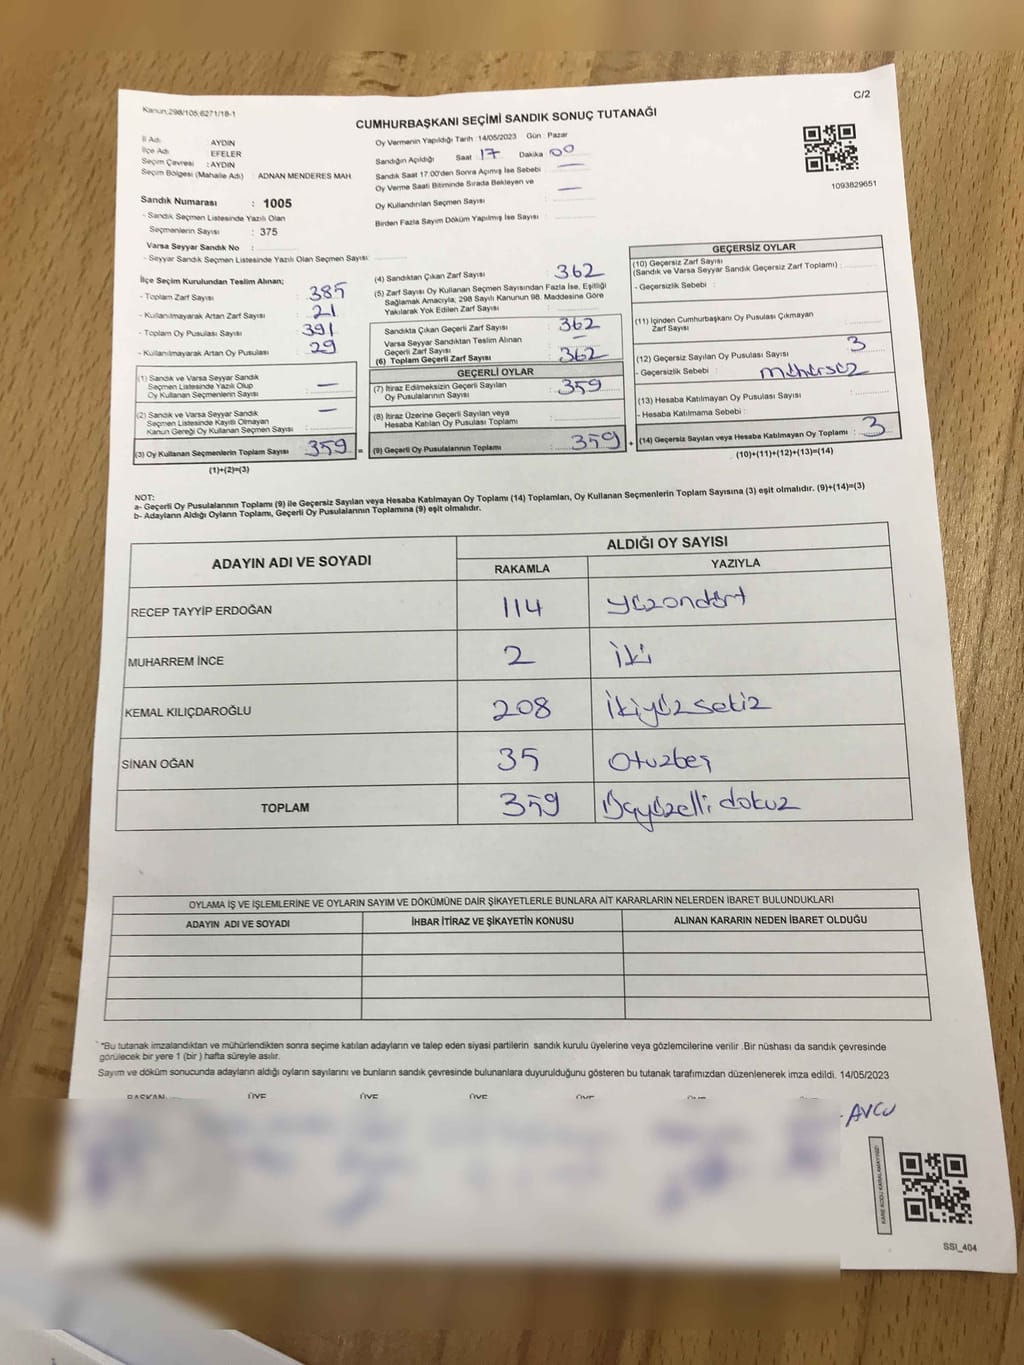 Kanun,298/105,6271/18-1
C/2
CUMHURBAŞKANI SEÇİMİ SANDIK SONUÇ TUTANAĞI
İl Adı : AYDIN
İlçe Adı : EFELER
Seçim Çevresi : AYDIN
Seçim Bölgesi (Mahalle Adı) : ADNAN MENDERES MAH.
Sandık Numarası : 1005
- Sandık Seçmen Listesinde Yazılı Olan
Seçmenlerin Sayısı : 375
Varsa Seyyar Sandık No :
- Seyyar Sandık Seçmen Listesinde Yazılı Olan Seçmen Sayısı:
Oy Vermenin Yapıldığı Tarih :14/05/2023 Gün : Pazar
Sandığın Açıldığı Saat 17 Dakika 00
Sandık Saat 17.00'den Sonra Açımış İse Sebebi : —
Oy Verme Saati Bitiminde Sırada Bekleyen ve
Oy Kullandırılan Seçmen Sayısı : —
Birden Fazla Sayım Döküm Yapılmış İse Sayısı :
1093829651
İlçe Seçim Kurulundan Teslim Alınan;
- Toplam Zarf Sayısı : 385
- Kullanılmayarak Artan Zarf Sayısı : 21
- Toplam Oy Pusulası Sayısı : 391
- Kullanılmayarak Artan Oy Pusulası : 29
(1) Sandık ve Varsa Seyyar Sandık
Seçmen Listesinde Yazılı Olup
Oy Kullanan Seçmenlerin Sayısı : —
(2) Sandık ve Varsa Seyyar Sandık
Seçmen Listesinde Kayıtlı Olmayan
Kanun Gereği Oy Kullanan Seçmen Sayısı : —
(3) Oy Kullanan Seçmenlerin Toplam Sayısı : 359
(1)+(2)=(3)
(4) Sandıktan Çıkan Zarf Sayısı : 362
(5) Zarf Sayısı Oy Kullanan Seçmen Sayısından Fazla İse, Eşitliği
Sağlamak Amacıyla, 298 Sayılı Kanunun 98. Maddesine Göre
Yakılarak Yok Edilen Zarf Sayısı :
Sandıkta Çıkan Geçerli Zarf Sayısı : 362
Varsa Seyyar Sandıktan Teslim Alınan
Geçerli Zarf Sayısı : —
(6) Toplam Geçerli Zarf Sayısı : 362
GEÇERLİ OYLAR
(7) İtiraz Edilmeksizin Geçerli Sayılan
Oy Pusulasının Sayısı : 359
(8) İtiraz Üzerine Geçerli Sayılan veya
Hesaba Katılan Oy Pusulası Toplamı :
= (9) Geçerli Oy Pusulalarının Toplamı : 359 +
GEÇERSİZ OYLAR
(10) Geçersiz Zarf Sayısı
(Sandık ve Varsa Seyyar Sandık Geçersiz Zarf Toplamı) :
- Geçersizlik Sebebi :
(11) İçinden Cumhurbaşkanı Oy Pusulası Çıkmayan
Zarf Sayısı :
(12) Geçersiz Sayılan Oy Pusulası Sayısı : 3
- Geçersizlik Sebebi : mühürsüz
(13) Hesaba Katılmayan Oy Pusulası Sayısı :
- Hesaba Katılmama Sebebi :
(14) Geçersiz Sayılan veya Hesaba Katılmayan Oy Toplamı : 3
(10)+(11)+(12)+(13)=(14)
NOT:
a- Geçerli Oy Pusulalarının Toplamı (9) ile Geçersiz Sayılan veya Hesaba Katılmayan Oy Toplamı (14) Toplamları, Oy Kullanan Seçmenlerin Toplam Sayısına (3) eşit olmalıdır. (9)+(14)=(3)
b- Adayların Aldığı Oyların Toplamı, Geçerli Oy Pusulalarının Toplamına (9) eşit olmalıdır.
ADAYIN ADI VE SOYADI ALDIĞI OY SAYISI
RAKAMLA YAZIYLA
RECEP TAYYİP ERDOĞAN 114 yüzondört
MUHARREM İNCE 2 iki
KEMAL KILIÇDAROĞLU 208 ikiyüzsekiz
SİNAN OĞAN 35 Otuzbeş
TOPLAM 359 Üçyüzelli dokuz
OYLAMA İŞ VE İŞLEMLERİNE VE OYLARIN SAYIM VE DÖKÜMÜNE DAİR ŞİKAYETLERLE BUNLARA AİT KARARLARIN NELERDEN İBARET BULUNDUKLARI
ADAYIN ADI VE SOYADI İHBAR İTİRAZ VE ŞİKAYETİN KONUSU ALINAN KARARIN NEDEN İBARET OLDUĞU
*Bu tutanak imzalandıktan ve mühürlendikten sonra seçime katılan adayların ve talep eden siyasi partilerin sandık kurulu üyelerine veya gözlemcilerine verilir .Bir nüshası da sandık çevresinde
görülecek bir yere 1 (bir ) hafta süreyle asılır.
Sayım ve döküm sonucunda adayların aldığı oyların sayılarını ve bunların sandık çevresinde bulunanlara duyurulduğunu gösteren bu tutanak tarafımızdan düzenlenerek imza edildi. 14/05/2023
BAŞKAN ÜYE ÜYE ÜYE ÜYE ÜYE
AVCU
KARE KODU KARALAMAYINIZ!
SSI_404